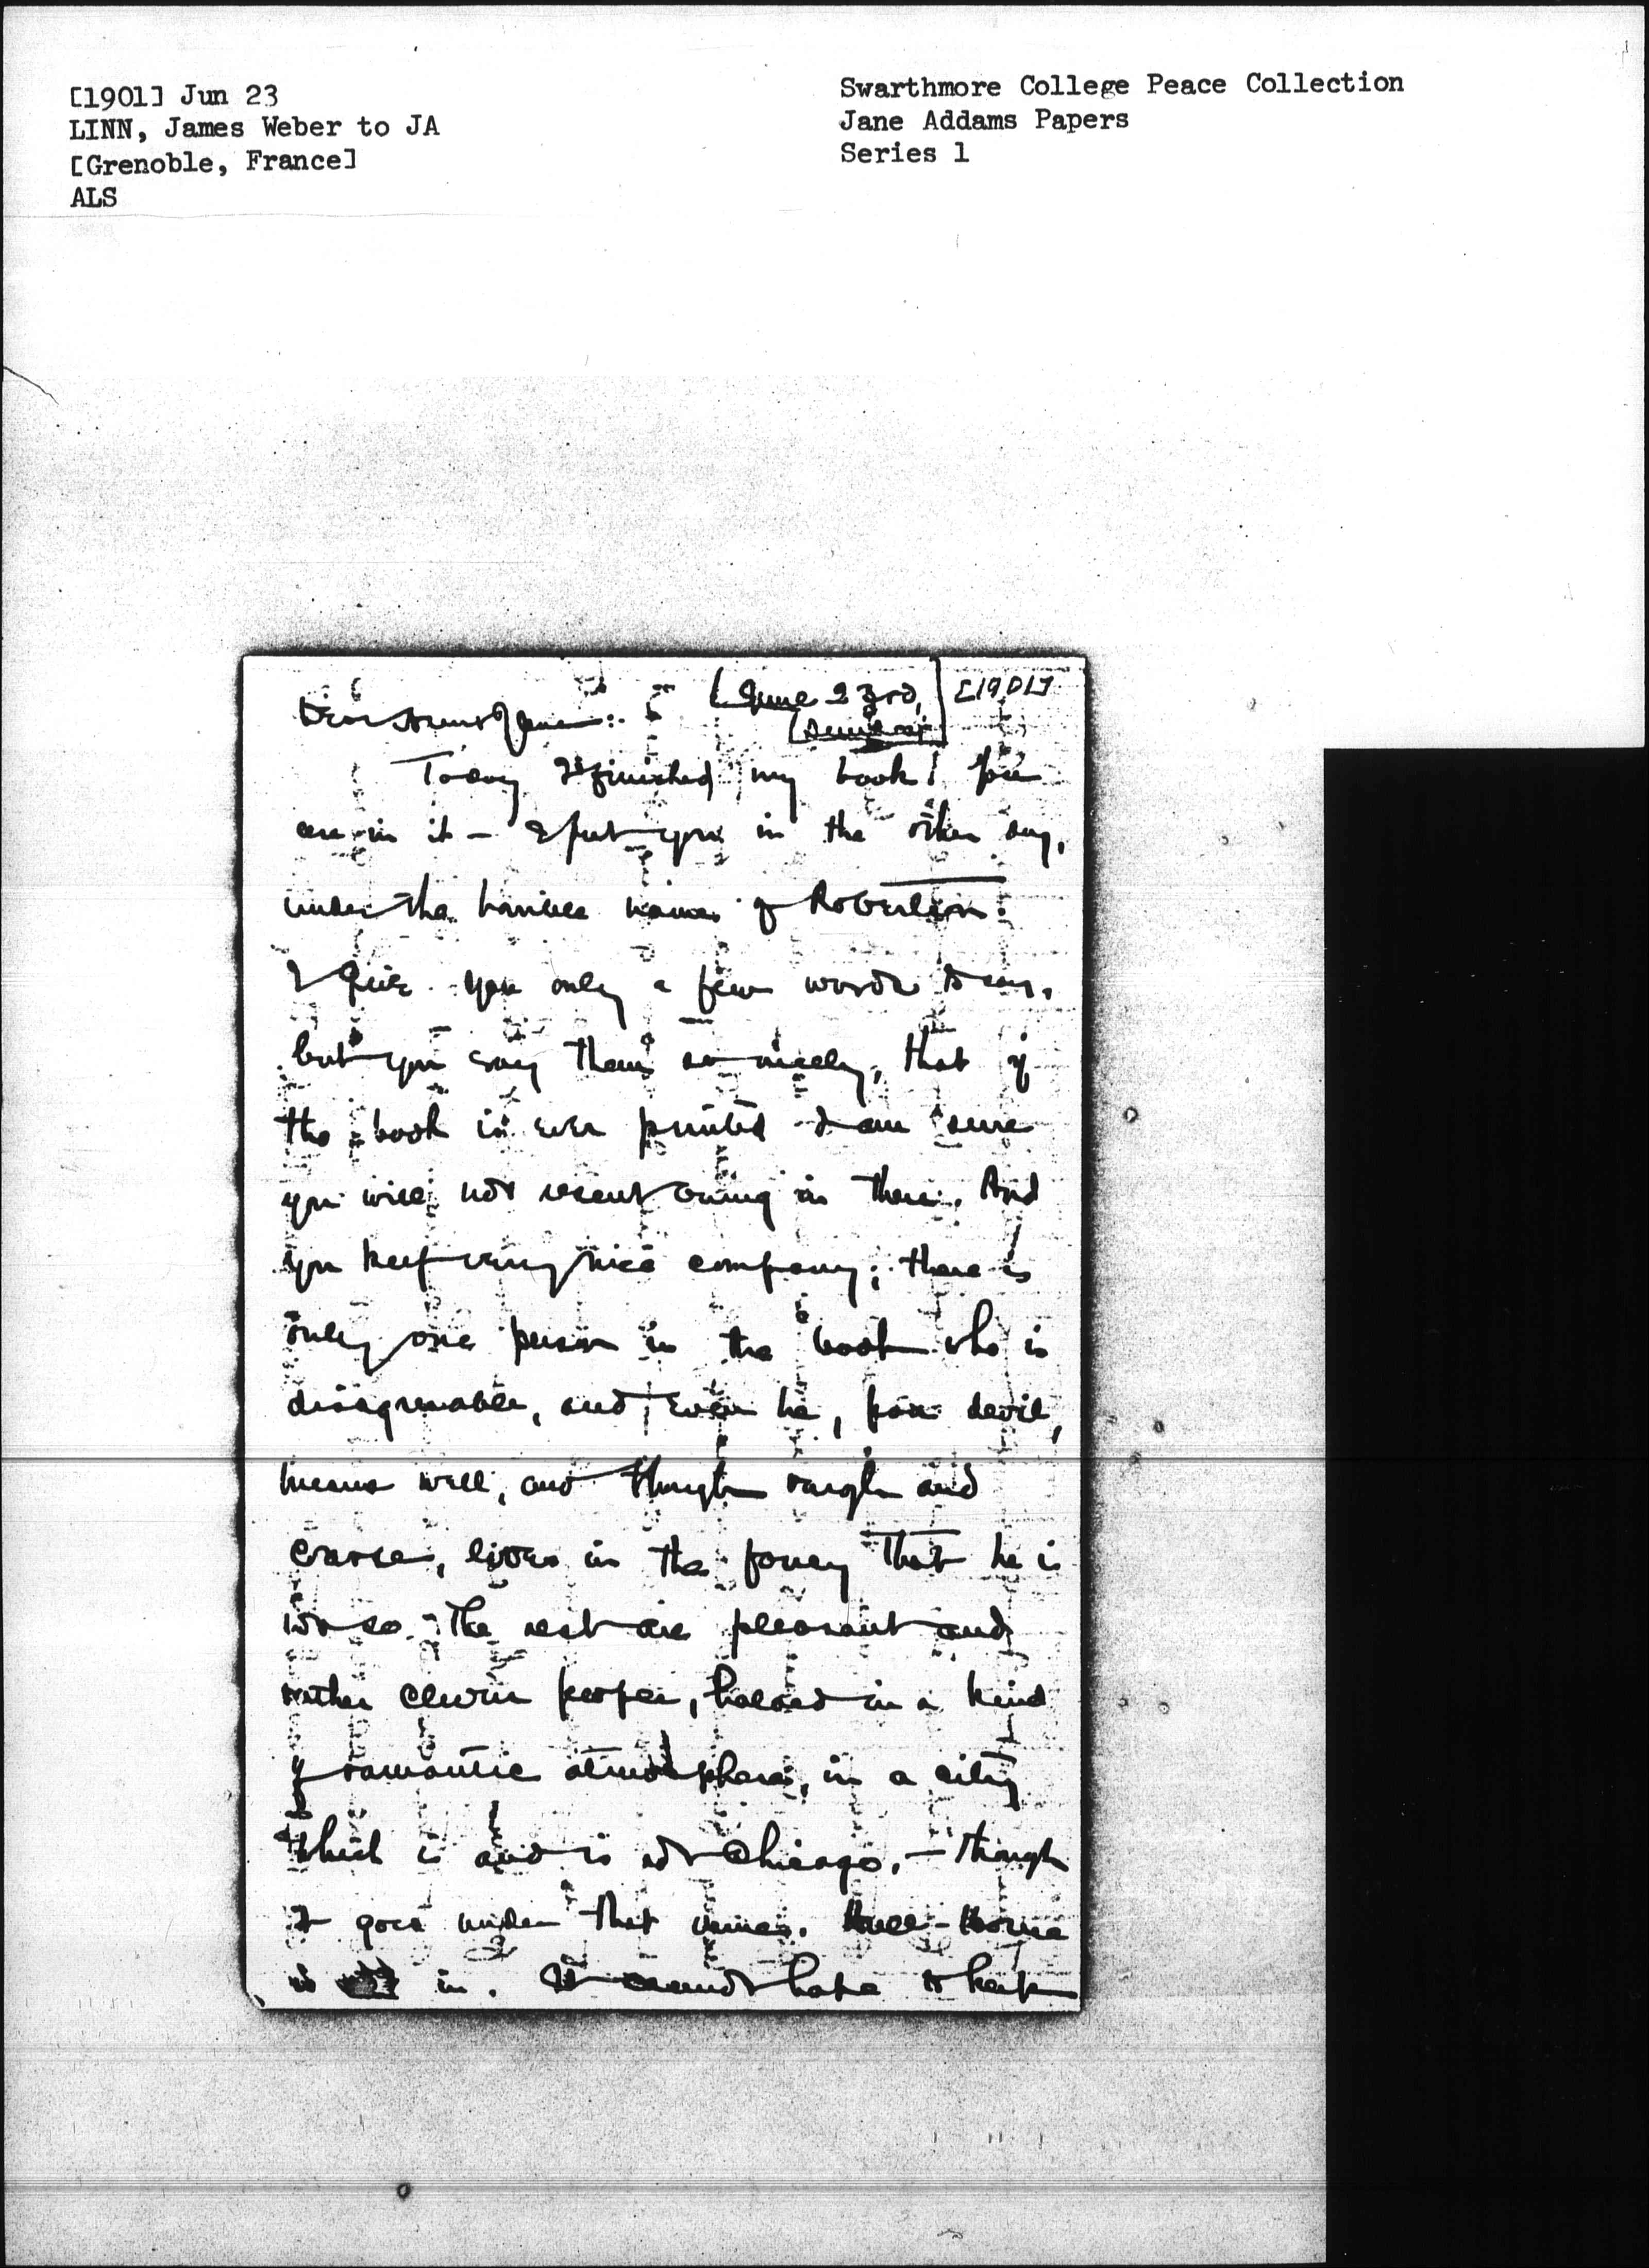 [1901] Jun 23
LINN, James Weber to JA
[Grenoble, France]
ALS
Swarthmore College Peace Collection
Jane Addams Papers
Series 1
June 23rd, [1901]
Sunday
Dear Aunt Jane:
Today I finished my book! You
are in it — I put you in the other day,
under the name of Robertson.
I give you only a few words to say,
but you say them so nicely, that if
the book is ever printed I am sure
you will not resent being in there. And
you keep very nice company; there is
only one person in the book who is
disagreeable, and even he, poor devil,
means well, and though rough and
coarse, lives in the fancy that he is
not so. The rest are pleasant and
rather clever people, haloed in a kind
of romantic atmosphere, in a city
which is and is not Chicago, — though
it goes under that name. Hull-House
is in. It to keep